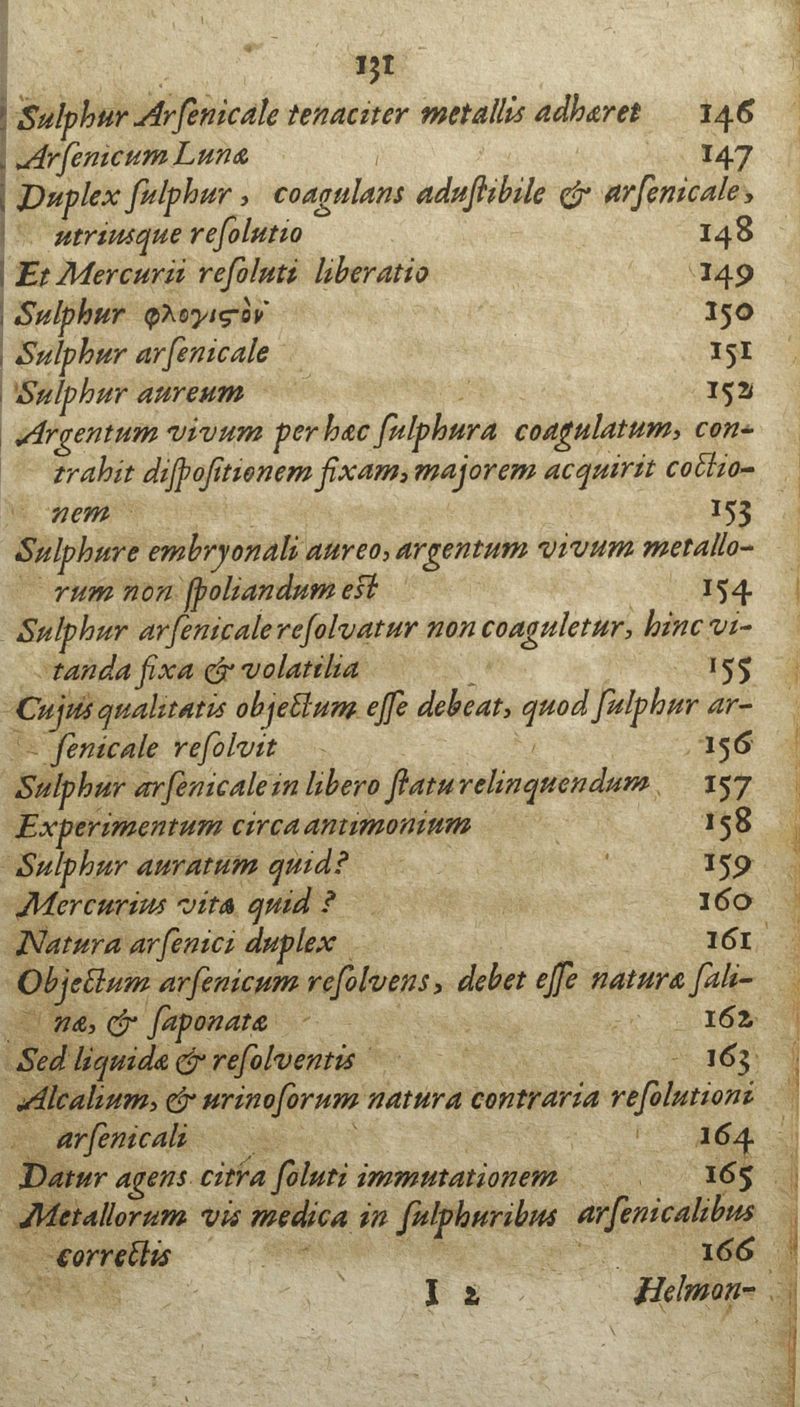 131
Sulphur Arſenicale tenaciter metallis adhæret 146
Arſenicum Lunæ 147
Duplex ſulphur, coagulans aduſtibile & arſenicale,
utriusque reſolutio 148
Et Mercurii reſoluti liberatio 149
Sulphur φλογιϛὸν 150
Sulphur arſenicale 151
Sulphur aureum 152
Argentum vivum per hæc ſulphura coagulatum, con-
trahit diſpoſitionem fixam, majorem acquirit coctio-
nem 153
Sulphure embryonali aureo, argentum vivum metallo-
rum non ſpoliandum est 154
Sulphur arſenicale reſolvatur non coaguletur, hinc vi-
tanda fixa & volatilia 155
Cujus qualitatis objectum eſſe debeat, quod ſulphur ar-
ſenicale reſolvit 156
Sulphur arſenicale in libero ſtatu relinquendum 157
Experimentum circa antimonium 158
Sulphur auratum quid? 159
Mercurius vitæ quid ? 160
Natura arſenici duplex 161
Objectum arſenicum reſolvens, debet eſſe naturæ ſali-
næ, & ſaponatæ 162
Sed liquidæ & reſolventis 163
Alcalium, & urinoſorum natura contraria reſolutioni
arſenicali 164
Datur agens citra ſoluti immutationem 165
Metallorum vis medica in ſulphuribus arſenicalibus
correctis 166
I 2 Helmon-